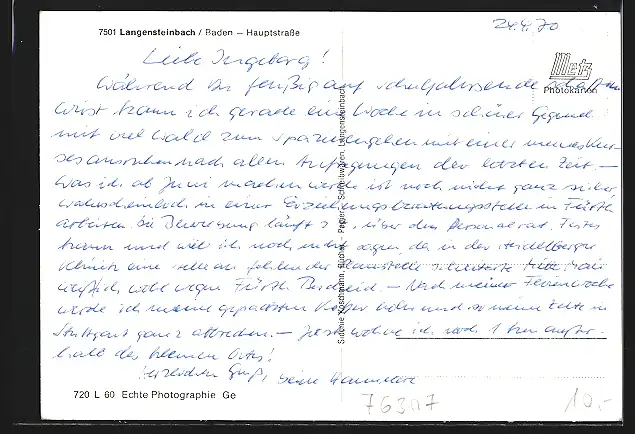 7501 Langensteinbach / Baden – Hauptstraße
24.4.70
Metz
Photokarten
Liebe Ingeborg!
Während Du fleißig auf Schuljahrsende
wirst kann ich gerade eine Woche in schöner Gegend
mit viel Wald zum Spazierengehen mit einer meines Kur-
ses ausruhen nach allen Aufregungen der letzten Zeit. –
Was ich ab Juni machen werde ist noch nicht ganz sicher
wahrscheinlich in einer Erziehungsberatungsstelle in Fürth
arbeiten. Die Bewerbung läuft über den Personalrat. Festes
kann und will ich noch nicht sagen, da in der Heidelberger
Klinik eine
wohl wegen Fürth Bescheid. – Nach meiner Ferienwoche
werde ich meine gepackten Koffer holen und so meine Zelte in
Stuttgart ganz abbrechen. – Jetzt wohne ich noch 1 km außer-
halb des kleinen Orts!
Herzlichen Gruß, Deine Hannelore
Koschmann, Bücher – Papier – Schreibwaren, Langensteinbach
720 L 60 Echte Photographie Ge
76307
10.-